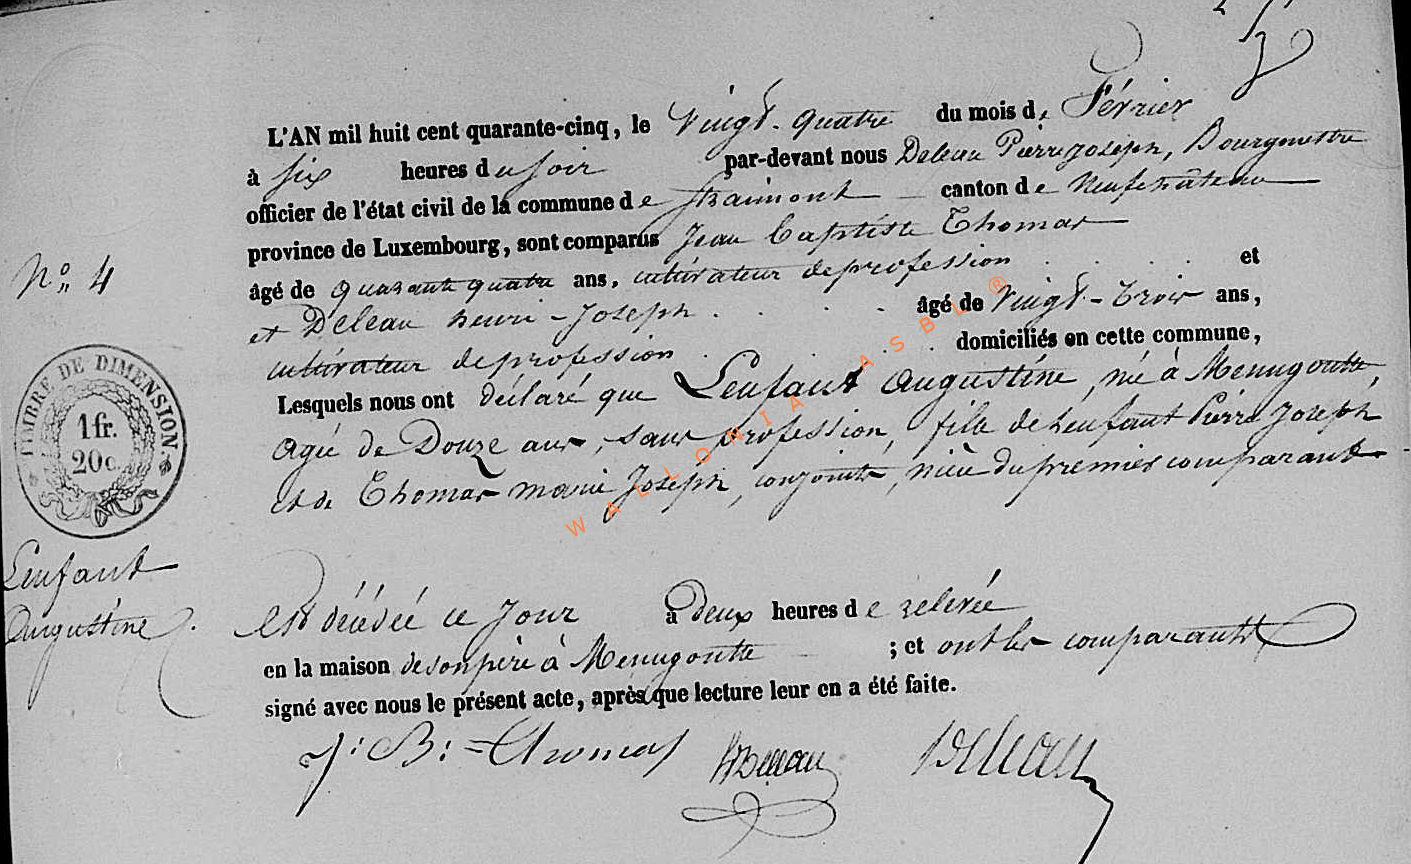 L'AN mil huit cent quarante-cinq, le Vingt-quatre du mois de Février
à six heures du soir par-devant nous Deleau Pierre joseph, Bourgmestre
officier de l'état civil de la commune de Straimont canton de Neufchâteau
province de Luxembourg, sont comparus Jean Baptiste Thomas
âgé de quarante quatre ans, cultivateur de profession et
et Deleau henri-Joseph âgé de Vingt-Trois ans,
cultivateur de profession domiciliés en cette commune,
Lesquels nous ont déclaré que Lenfant Augustine, né à Menugoutte,
agée de Douze ans, sans profession, fille de Lenfant Pierre Joseph
et de Thomas marie Joseph, conjoints, nièce du premier comparant
N° 4
TIMBRE DE DIMENSION
1fr.
20c.
Lenfant
Augustine
Est décédée ce Jour à deux heures de relevée
en la maison de son père à Menugoutte ; et ont les comparants
signé avec nous le présent acte, après que lecture leur en a été faite.
J: B: Thomas HDeleau Deleau
WALLONIA ASBL ®